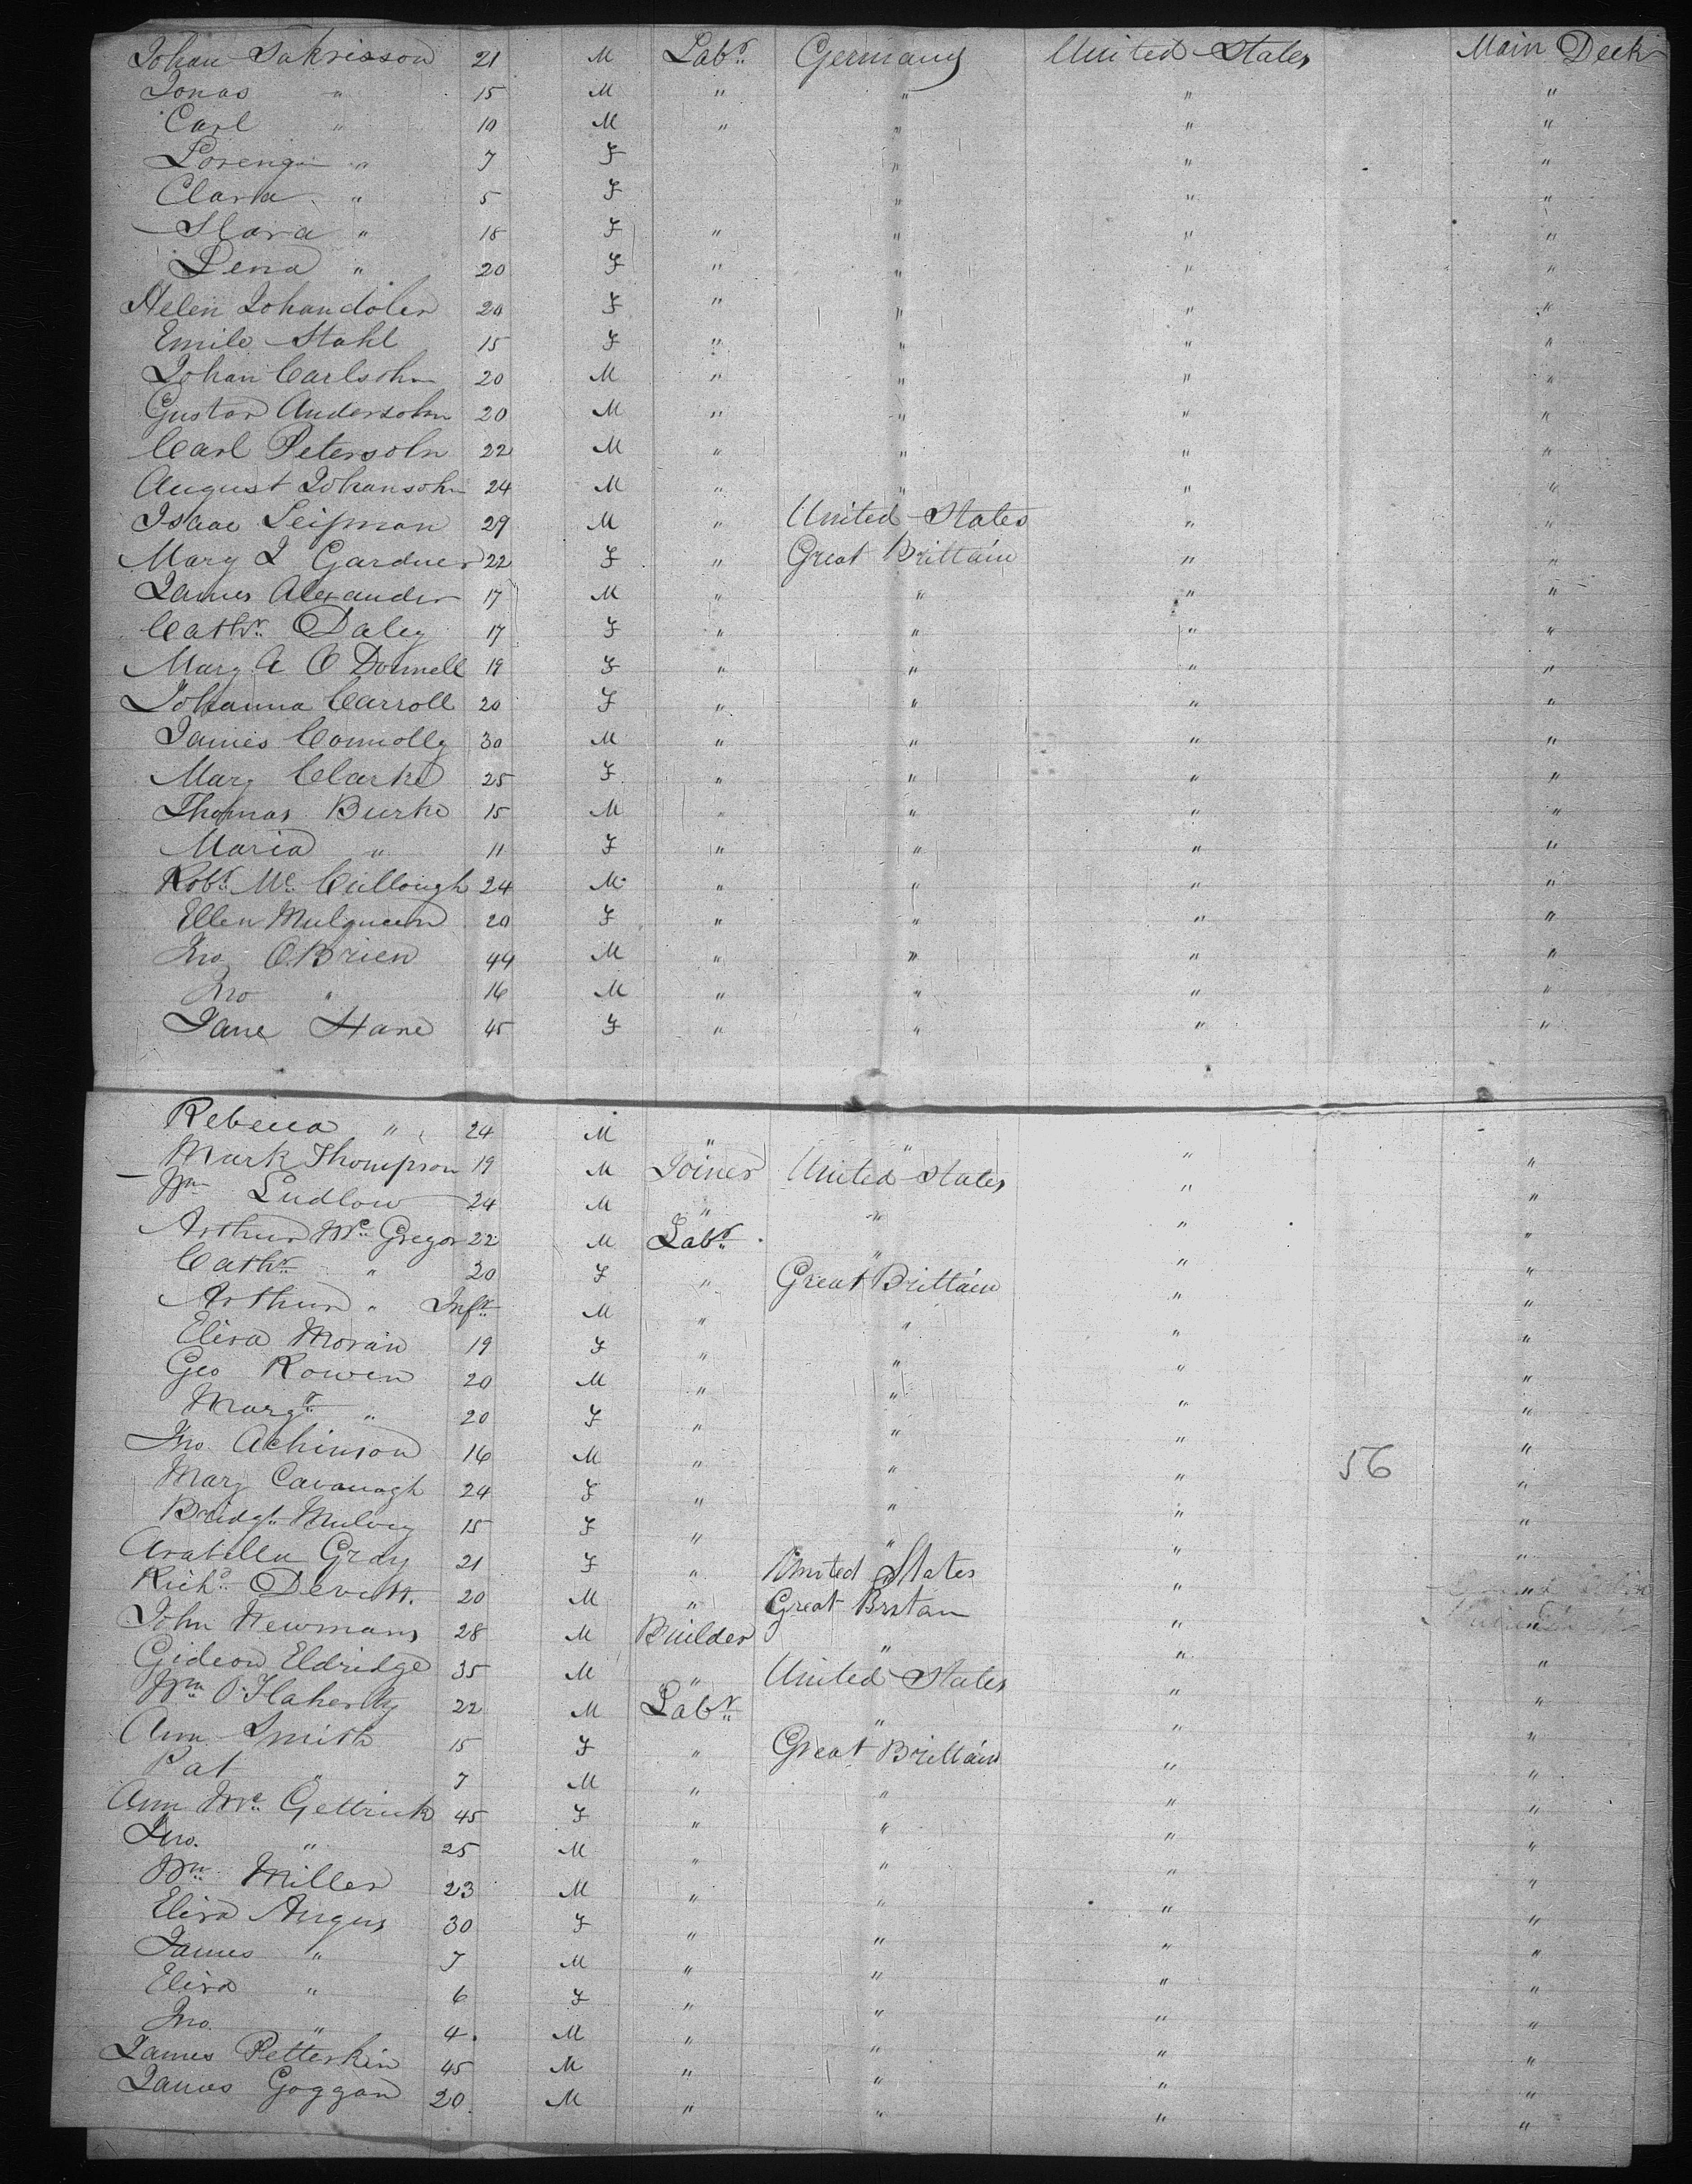 Johan Sakrisson 21 M Lab.r Germany United States Main Deck
Jonas " 15 M " " " "
Carl " 10 M " " " "
Lorenz " 7 F " " "
Clara " 5 F " " "
Slara " 18 F " " " "
Lena " 20 F " " " "
Helen Johandoler 20 F " " " "
Emile Stahl 15 F " " " "
Johan Carlsohn 20 M " " " "
Gustav Andersohn 20 M " " " "
Carl Petersohn 22 M " " " "
August Johansohn 24 M " " " "
Isaac Leipman 29 M " United States " "
Mary J Gardner 22 F " Great Brittain " "
James Alexander 17 M " " " "
Cathr. Daley 17 F " " " "
Mary A O Donnell 19 F " " " "
Johanna Carroll 20 F " " " "
James Connolly 30 M " " " "
Mary Clarke 25 F " " " "
Thomas Burke 15 M " " " "
Maria " 11 F " " " "
Robt. Mc. Cullough 24 M " " " "
Ellen Mulqueen 20 F " " " "
Jno O.Brien 44 M " " " "
Jno " 16 M " " " "
Jane Hane 45 F " " " "
Rebecca " 24 M " " " "
Mark Thompson 19 M Joiner United States " "
Wm Ludlow 24 M " " " "
Arthur Mc. Gregor 22 M Lab.r " " "
Cathr. " 20 F " Great Brittain " "
Arthur " Inft. M " " " "
Eliza Moran 19 F " " " "
Geo Rowen 20 M " " " "
Margt. " 20 F " " " "
Jno Achinson 16 M " " " "
Mary Cavanagh 24 F " " " 56 "
Bridgt. Mulvey 15 F " " " "
Arabella Gray 21 F " United States " "
Richd. Devitt. 20 M " Great Brstan " "
John Newmans 28 M Builder " " "
Gideon Eldridge 35 M " United States " "
Wm O'Flaherty 22 M Lab.r " " "
Ann Smith 15 F " Great Brittain " "
Pat " 7 M " " " "
Ann Mc. Gettrick 45 F " " " "
Jno. " 25 M " " " "
Wm. Miller 23 M " " " "
Eliza Angus 30 F " " " "
James " 7 M " " " "
Eliza " 6 F " " " "
Jno. " 4. M " " " "
James Petterkin 45 M " " " "
James Goggan 20. M " " " "